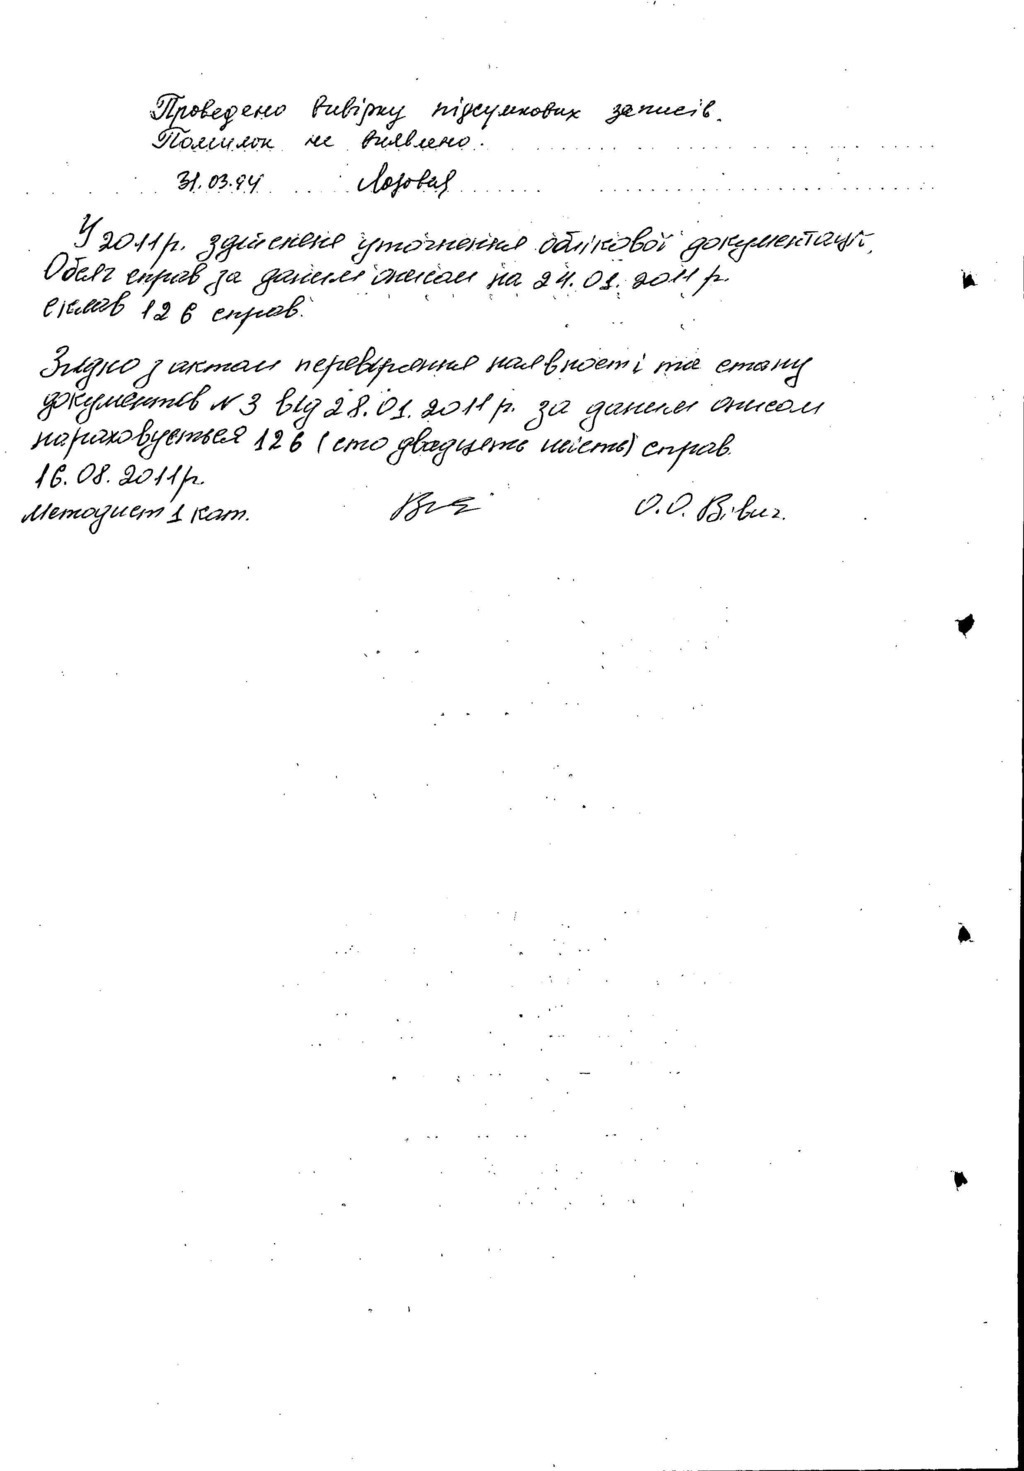 Проведено вивірку підсумкових записів.
Помилок не виявлено.
31.03.94 Лозовая
У 2011р. здійснене уточнення облікової документації.
Обсяг справ за даним описом на 24.01.2011 р.
склав 126 справ.
Згідно з актом перевіряння наявності та стану
документів №3 від 28.01.2011 р. за даним описом
нараховується 126 (сто двадцять шість) справ.
16.08.2011р.
Методист 1 кат. О.О. Вівич.